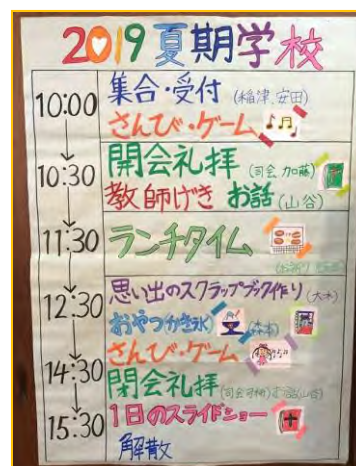 2019 夏期学校
10:00
集合・受付 (稲津、安田)
さんび・ゲーム
10:30
開会礼拝 (司会 加藤)
教師げき お話 (山谷)
11:30
ランチタイム
12:30
思い出のスクラップブック作り (大木)
おやつかき氷 (森本)
さんび・ゲーム
14:30
閉会礼拝 (司会 お話 (山谷)
15:30
1日のスライドショー
解散